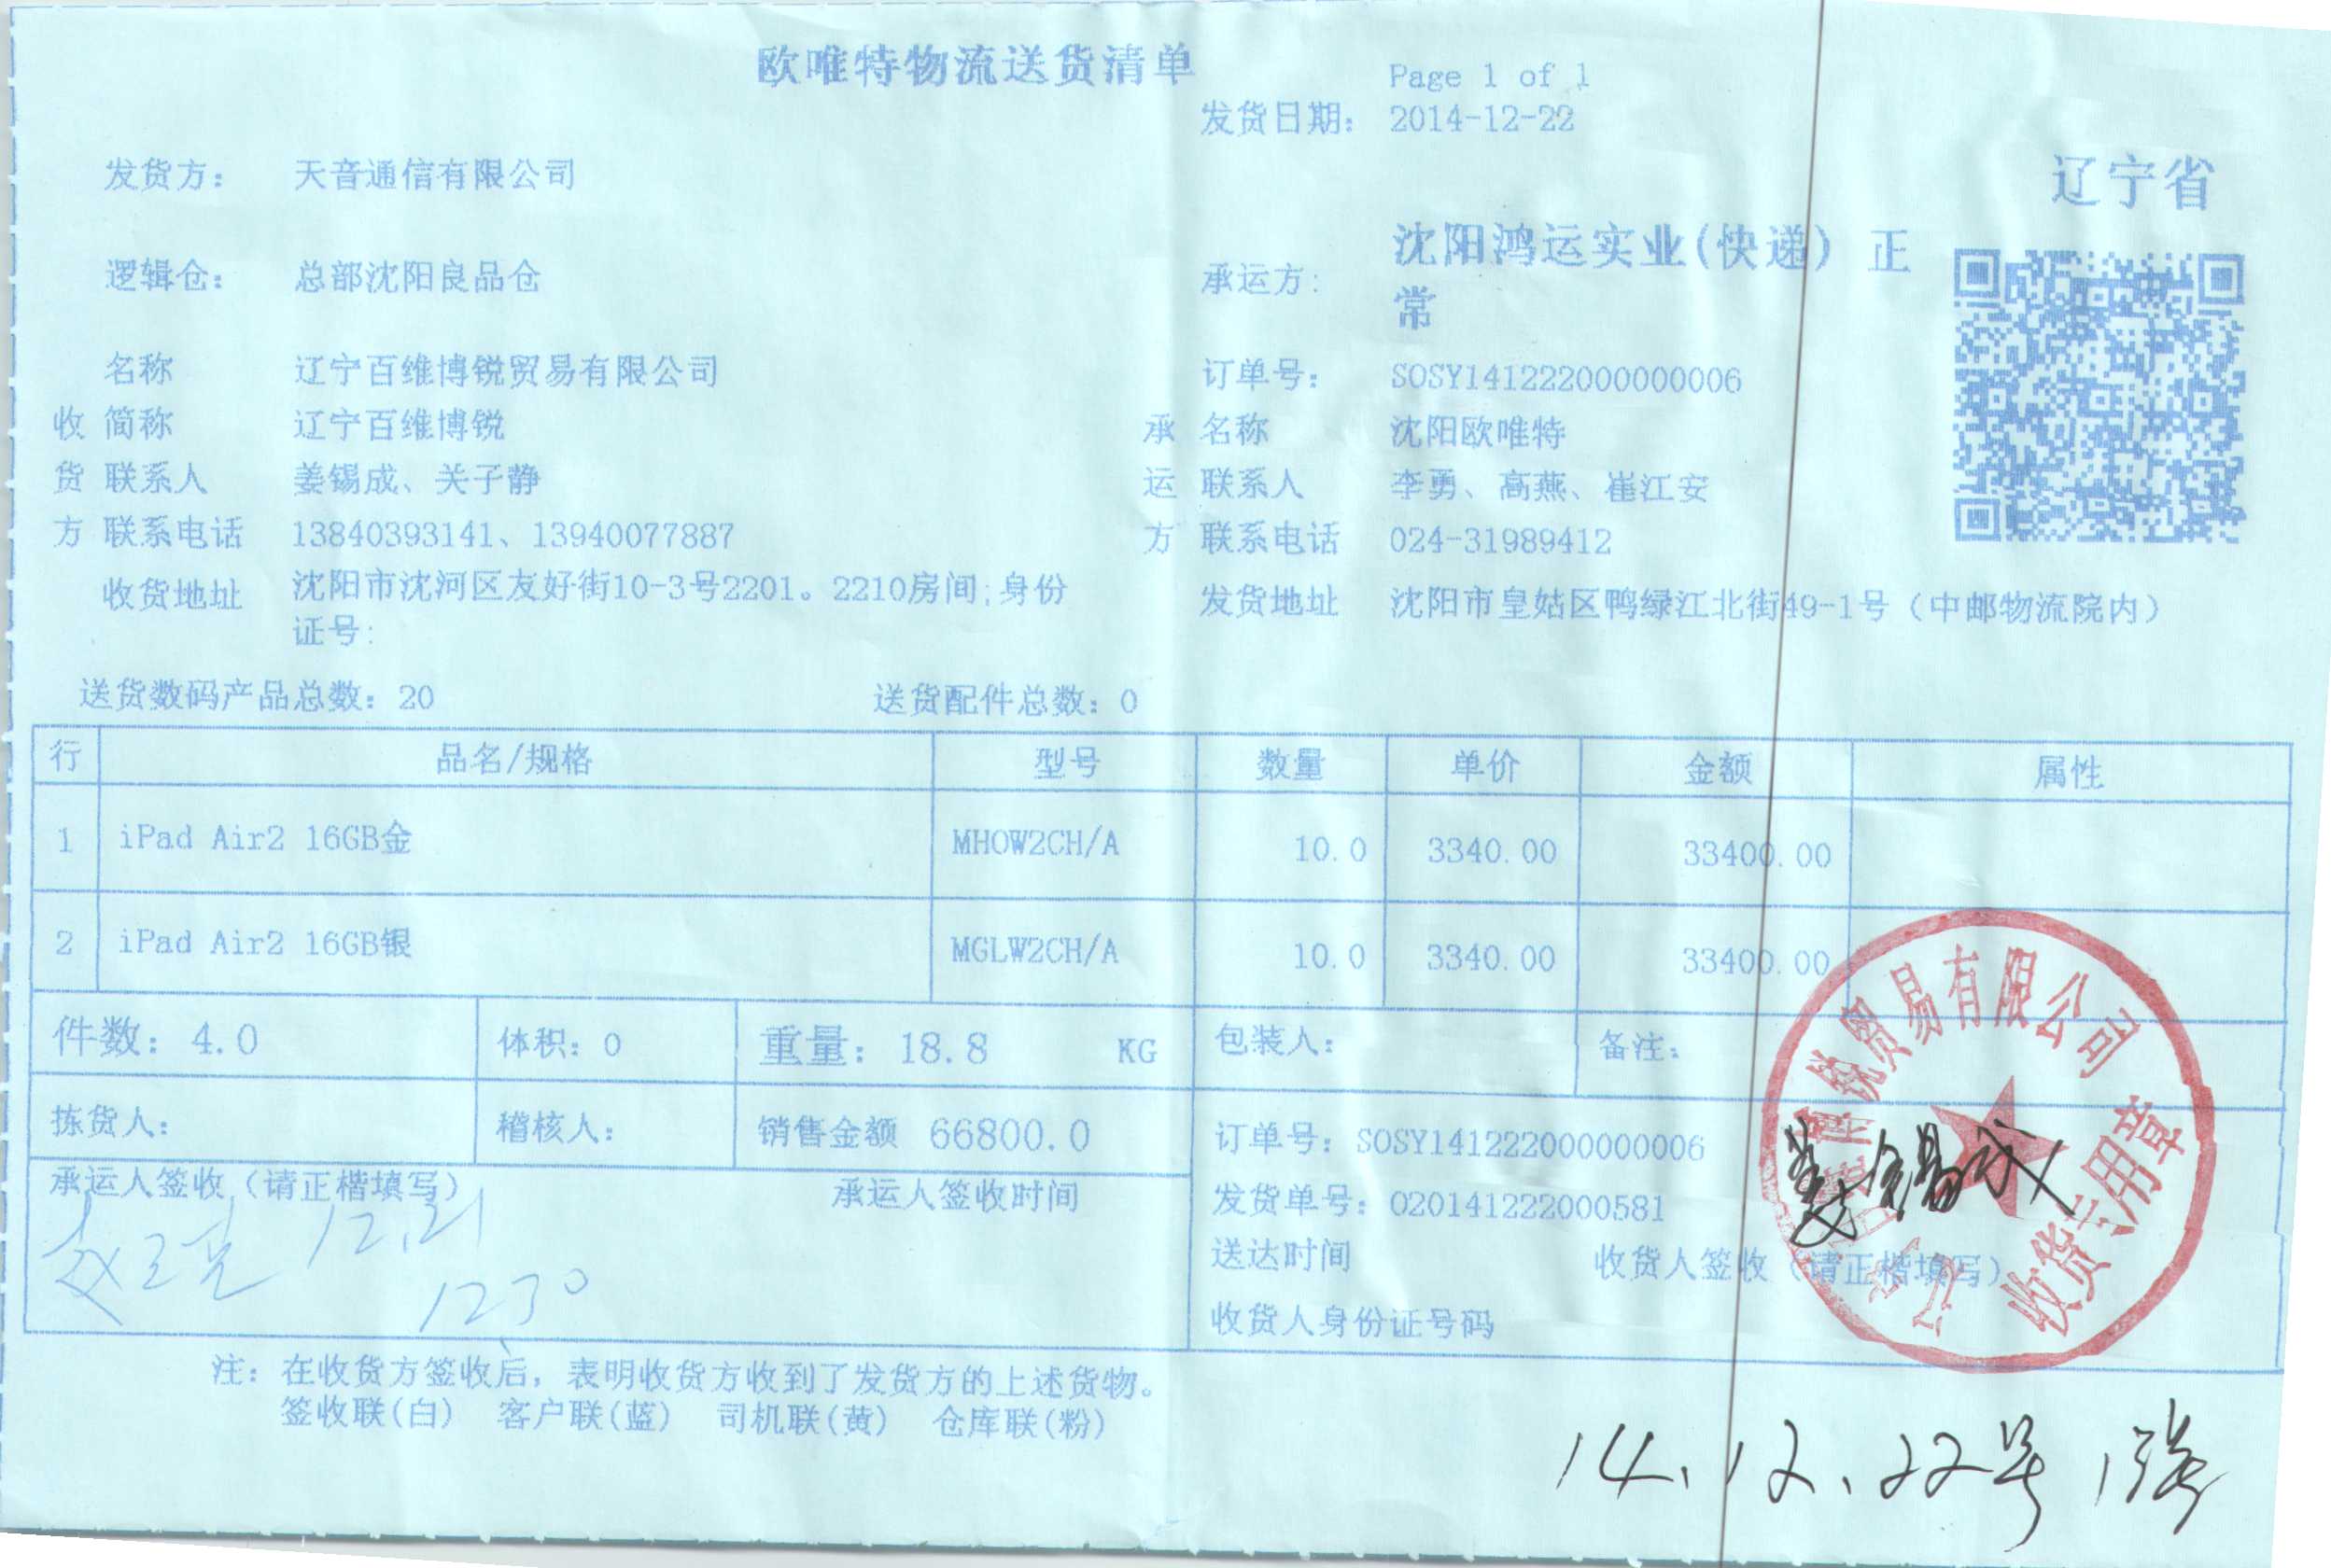 欧唯特物流送货清单
Page 1 of 1
发货日期: 2014-12-22
发货方: 天音通信有限公司
辽宁省
逻辑仓: 总部沈阳良品仓
承运方: 沈阳鸿运实业(快递) 正
常
名称 辽宁百维博锐贸易有限公司
订单号: SOSY141222000000006
收 简称 辽宁百维博锐
承 名称 沈阳欧唯特
货 联系人 姜锡成、关子静
运 联系人 李勇、高燕、崔江安
方 联系电话 13840393141、13940077887
方 联系电话 024-31989412
收货地址 沈阳市沈河区友好街10-3号2201。2210房间;身份
证号:
发货地址 沈阳市皇姑区鸭绿江北街49-1号（中邮物流院内）
送货数码产品总数: 20 送货配件总数: 0
行 品名/规格 型号 数量 单价 金额 属性
1 iPad Air2 16GB金 MHOW2CH/A 10.0 3340.00 33400.00
2 iPad Air2 16GB银 MGLW2CH/A 10.0 3340.00 33400.00
件数: 4.0 体积: 0 重量: 18.8 KG 包装人: 备注:
拣货人: 稽核人: 销售金额 66800.0
订单号: SOSY141222000000006
承运人签收（请正楷填写） 承运人签收时间
发货单号: O20141222000581
12.21
1230
送达时间 收货人签收（请正楷填写）
收货人身份证号码
姜锡成
贸易有限公司
收货专用章
注: 在收货方签收后, 表明收货方收到了发货方的上述货物。
签收联(白) 客户联(蓝) 司机联(黄) 仓库联(粉)
14.12.22号